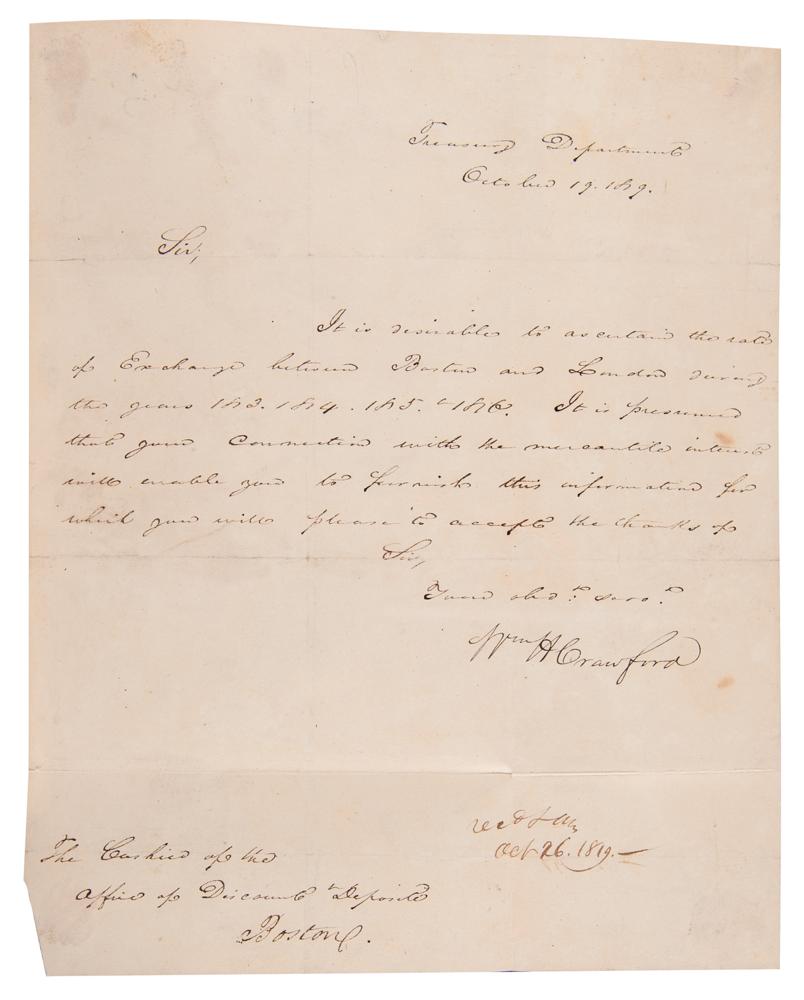 Treasury Department
October 19. 1819.
Sir,
It is desirable to ascertain the rate
of Exchange between Boston and London during
the years 1813. 1814. 1815. & 1816. It is presumed
that your connection with the mercantile interest
will enable you to furnish this information for
which you will please to accept the thanks of
Sir,
Your obdt. servt.
Wm H Crawford
Oct 26. 1819.
The Cashier of the
Office of Discount & Deposite
Boston.